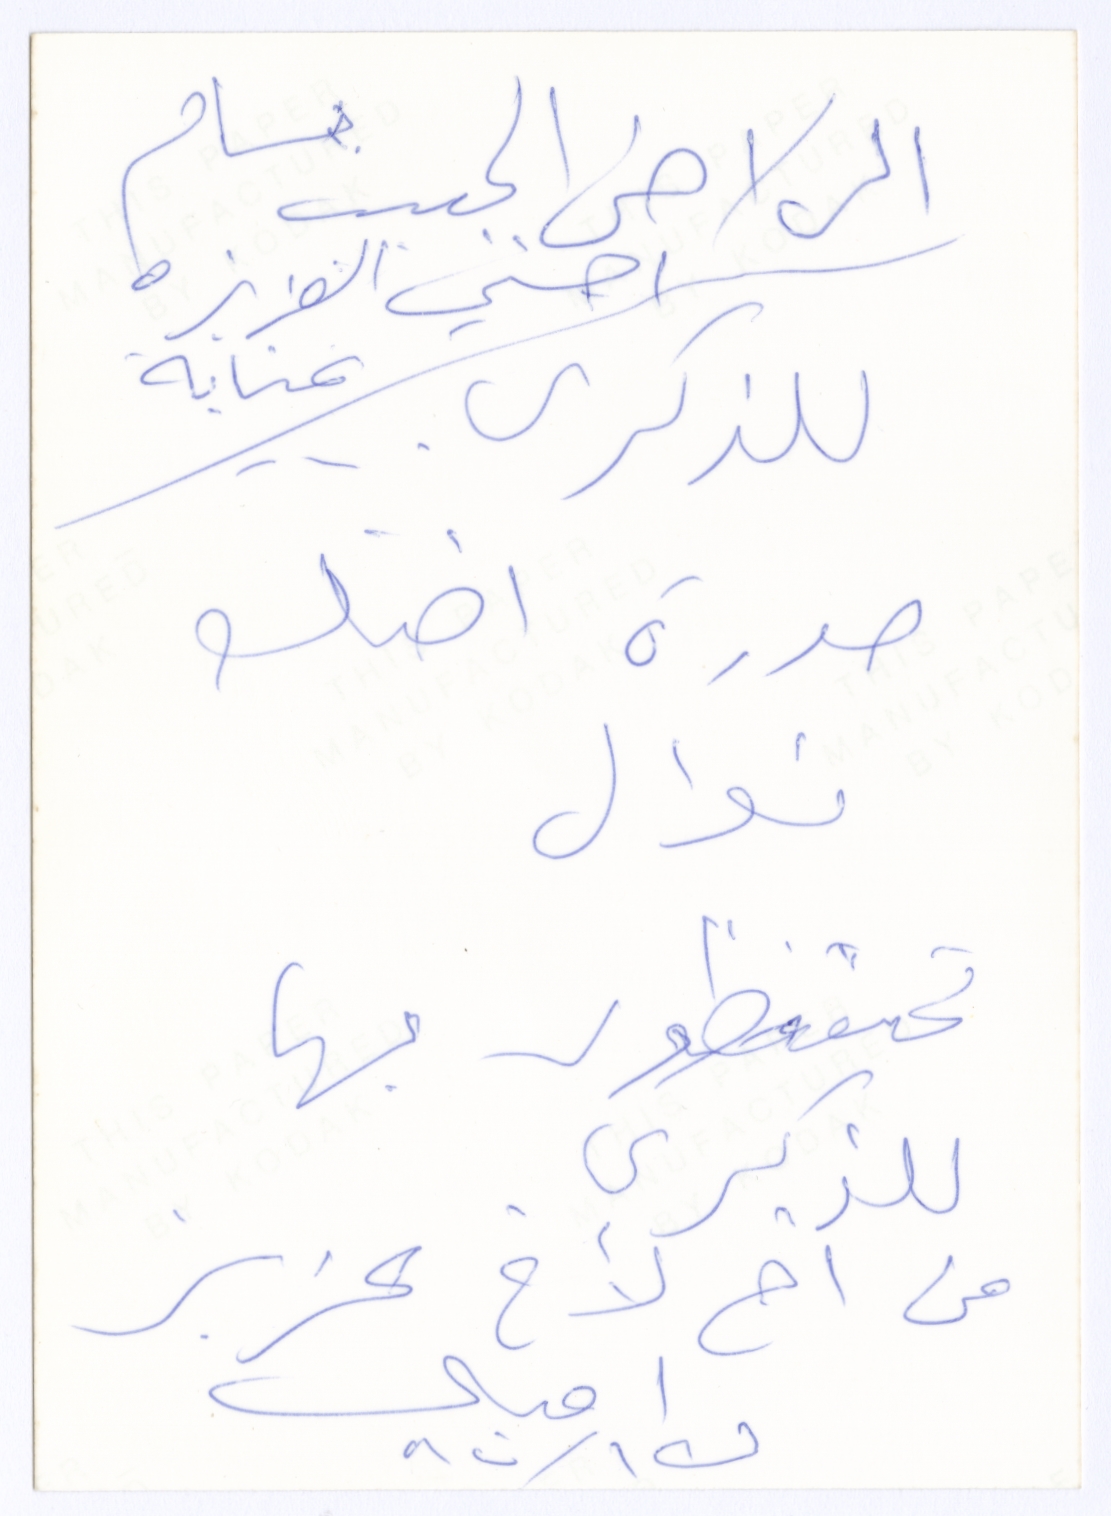 الى الاخ الحبيب بسام
اختي العزيزة
عناية
للذكرى
صورة اختك
نوال
تحتفظون بها
للذكرى
من أخ لأخ عزيز
THIS PAPER
MANUFACTURED
BY KODAK